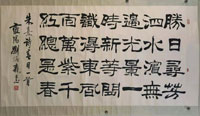 勝日尋芳
泗水濱無
邊光景一
時新等閑
識得東風
面萬紫千
紅總是春
朱熹詩春日